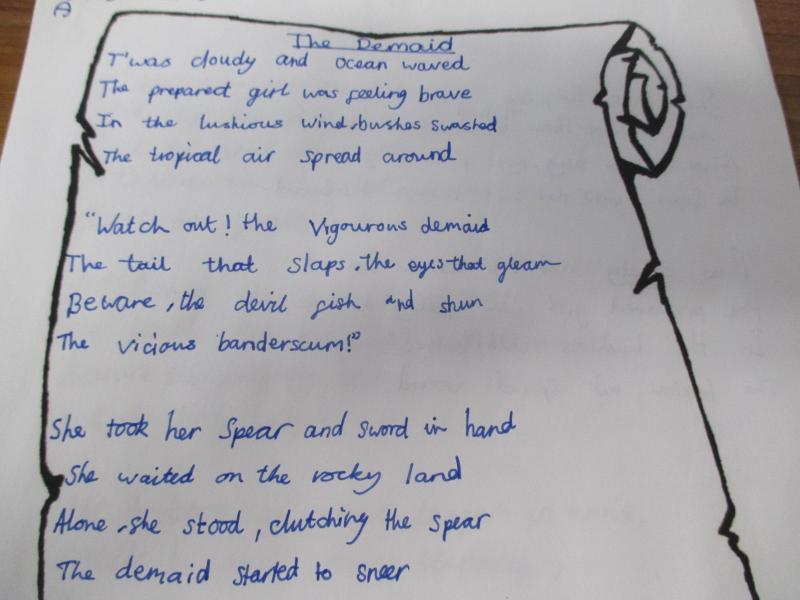 The Demaid
T'was cloudy and ocean waved
The prepared girl was feeling brave
In the lushious wind, bushes swashed
The tropical air spread around
"Watch out! the vigourous demaid
The tail that slaps, the eyes that gleam
Beware, the devil fish and shun
The vicious banderscum!"
She took her spear and sword in hand
She waited on the rocky land
Alone, she stood, clutching the spear
The demaid started to sneer